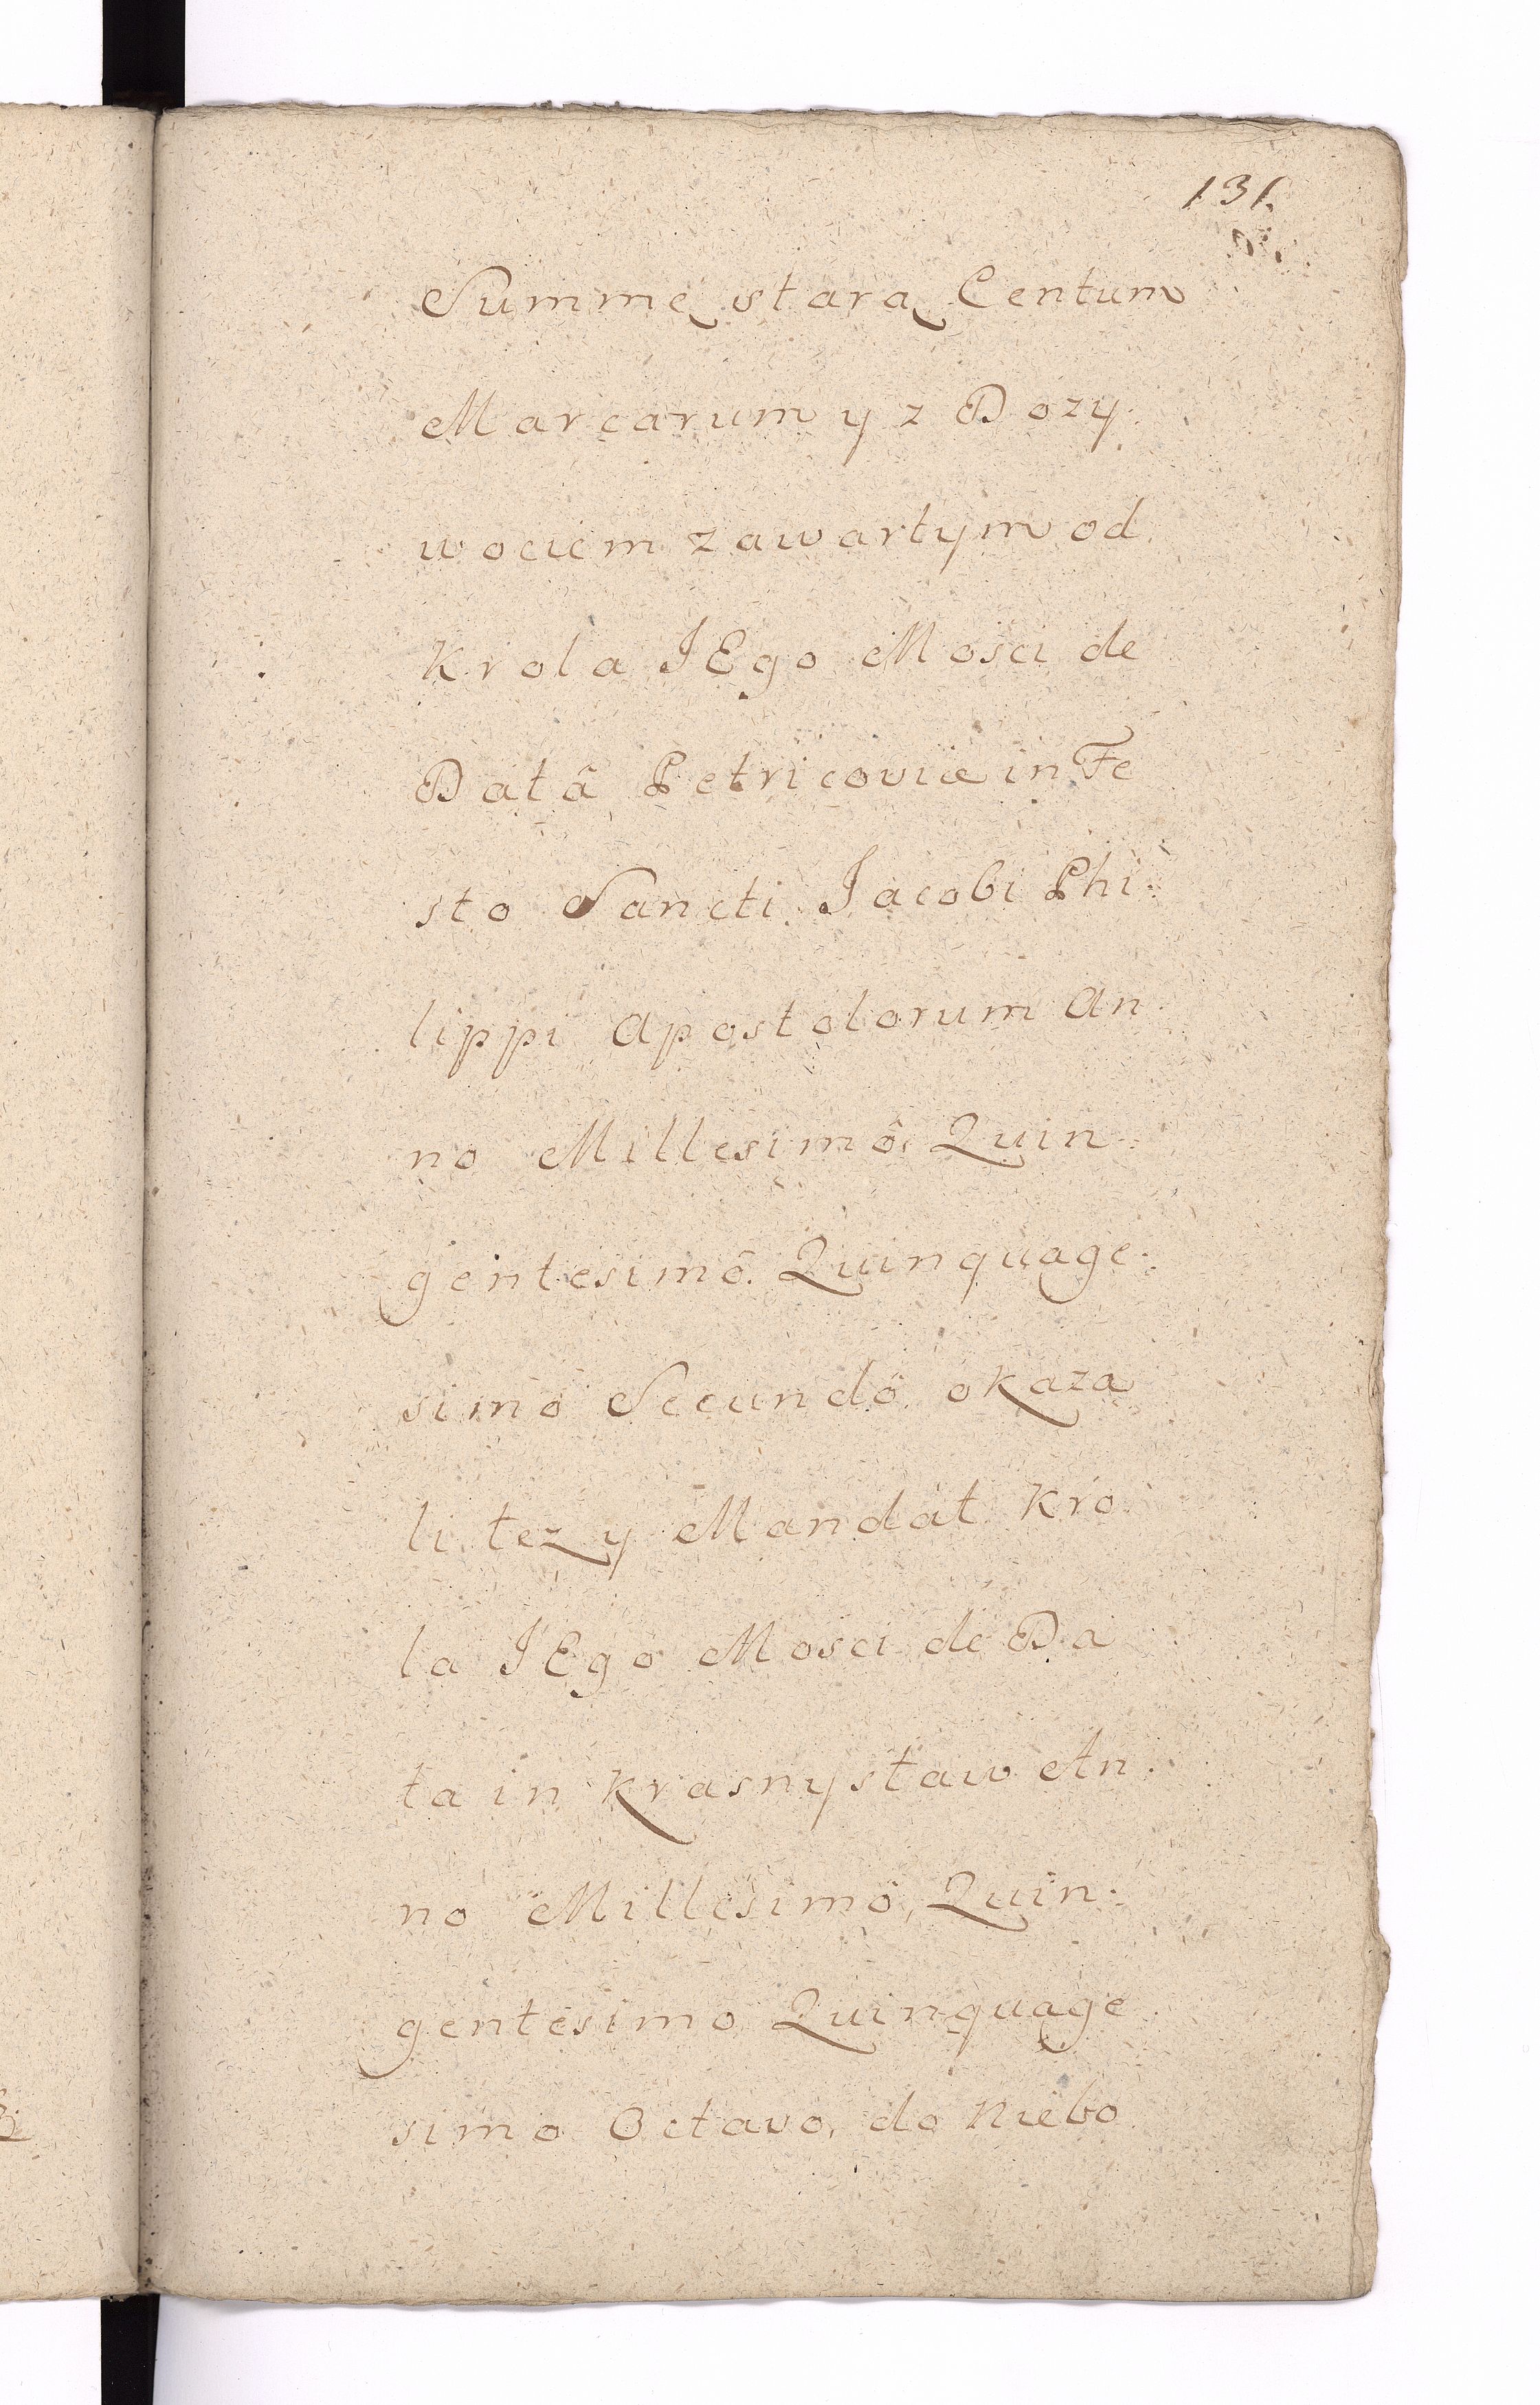 131.
Summę starą Centum
Marcarum y z Dozy
wociem zawartym od
Krola JEgo Mosci de
Datâ Petricoviæ in Fe
sto Sancti Jacobi Phi
lippi Apostolorum An
no Millesimô Quin
gentesimô Quinquage
simo Secundô okaza
li tez y Mandat Kro
la JEgo Mosci de Da
ta in Krasnystaw An
no Millesimô, Quin
gentesimo Quinquage
simo Octavo, do Niebo